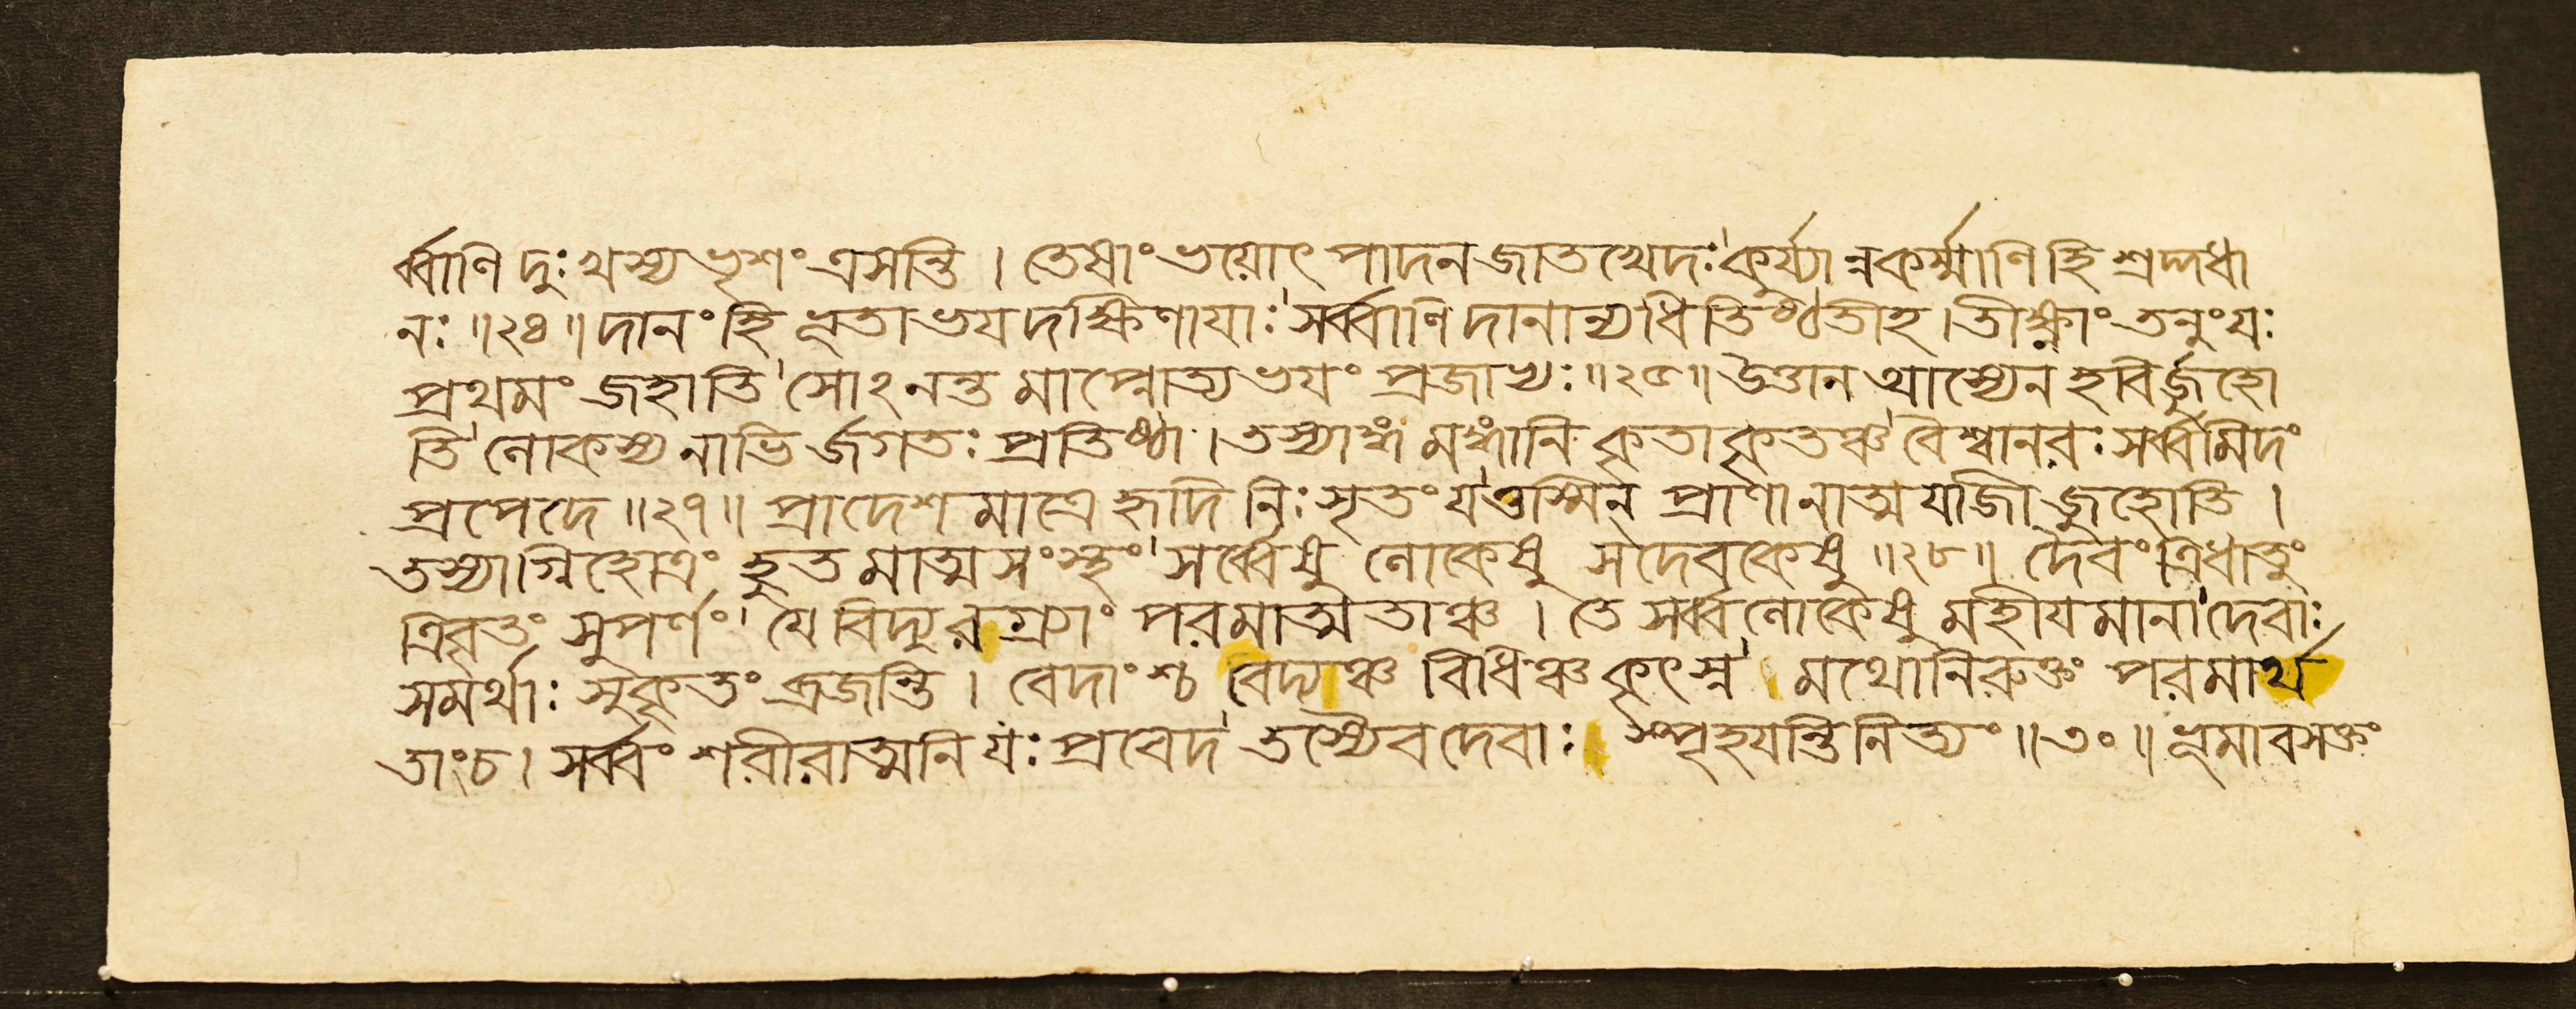 র্ব্বাণি দুঃখস্য ভৃশং ত্রসন্তি । তেষাং ভয়োৎপাদনজাতখেদঃ' কুর্য্যান্নকর্ম্মাণি হি শ্রদ্দধা
নঃ ॥২৪॥ দানং হি ভূতাভযদক্ষিণাযাঃ' সর্ব্বাণি দানান্যধিতিষ্ঠতীহ । তীক্ষ্ণাং তনুং যঃ
প্রথমং জহাতি' সোঽনন্তমাপ্নোত্যভয়ং প্রজাভ্যঃ ॥২৫॥ উত্তান আস্যেন হবির্জুহো
তি' লোকস্য নাভির্জগতঃ প্রতিষ্ঠা । তস্যাঙ্গমঙ্গানি কৃতাকৃতঞ্চ' বৈশ্বানরঃ সর্ব্বমিদং
প্রপেদে ॥২৭॥ প্রাদেশমাত্রে হৃদি নিঃসৃতং য'ত্তস্মিন্ প্রাণানাত্মযাজী জুহোতি ।
তস্যাগ্নিহোত্রং হুতমাত্মসংস্থং' সর্ব্বেষু লোকেষু সদেবকেষু ॥২৮॥ দৈবং ত্রিধাতুং
ত্রিবৃতং সুপর্ণং' যে বিদ্যুরগ্র্যাং পরমাত্মতাঞ্চ । তে সর্ব্বলোকেষু মহীযমানা' দেবাঃ
সমর্থাঃ সুকৃতং ব্রজন্তি । বেদাংশ্চ বেদ্যঞ্চ বিধিঞ্চ কৃৎস্ন' মথোনিরুক্তং পরমার্থ
তাংচ । সর্ব্বং শরীরাত্মনি যঃ প্রবেদ' তস্যৈব দেবাঃ স্পৃহযন্তি নিত্যং ॥৩০॥ ভূমাবসক্তং